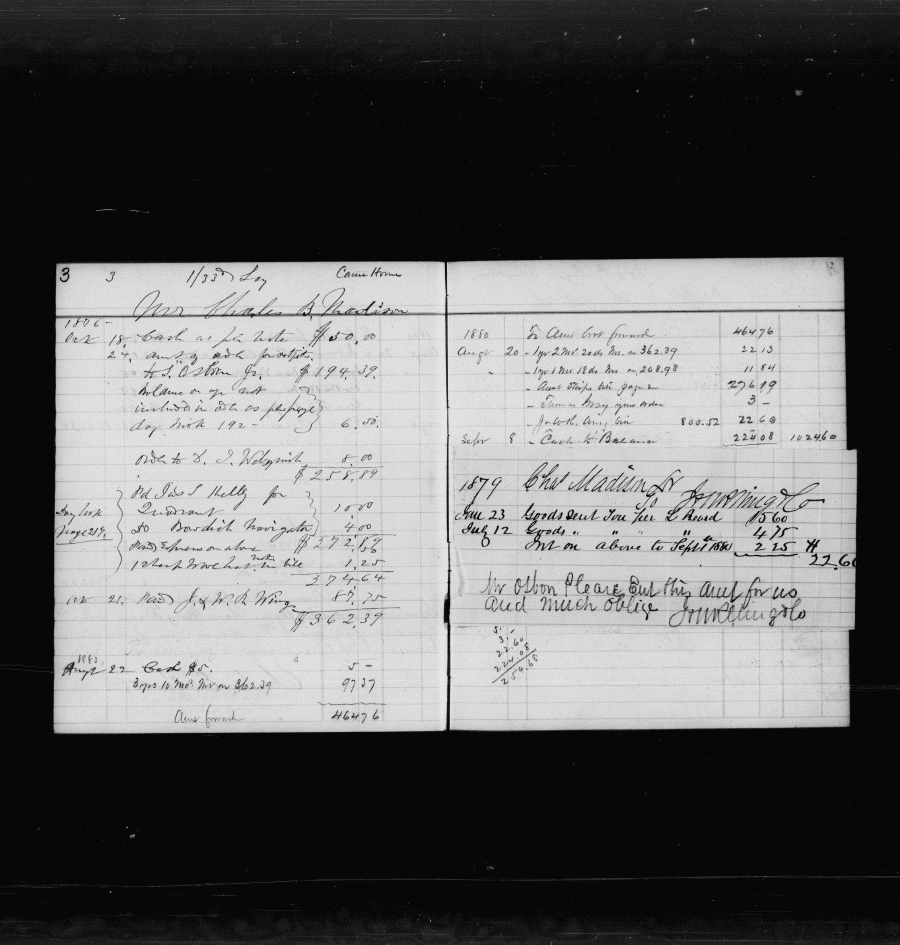 3 3 1/33d Lay Came Home
Mr Charles B. Madison
1876-
Oct 18. Cash as per note $50.00
24. amt of order for outfit
to S. Osborn Jr. $194.39.
included in order as per page
day book 192- 6.50.
order to D. J. 8.00
$258.89
Pd Jas S. Kelly for
Day book Quadrant 10.00
Page 214. Do Bowditch Navigator 4.00
$272.89
Paid Expenses on above .50
not in bill 1.25
374.64
Oct 21. Paid J. & W. R. Wing 87.75
$362.39
1880
Augt 22 Cash $5. 5-
3 yrs 10 Mos Int on 362.39 97.37
Amt forward 464.76
1880 To Amt brot forward 464.76
Augt 20 - 1 yr 2 Mos 20 ds Int. on 362.39 22.13
" - 1 yr 1 Mo 18 ds Int on 208.98 11.84
- Amt Ships bill page 2 276.19
- Thomas Gray your order 3-
- J & W R Wing bill 800.52 22.60
Sepr 8 - Cash to Balance 224.08 1024.60
1879 Chas Madison Dr
To J & W R Wing & Co
Jan 23 Goods sent you per L Heard 15.60
July 12 Goods " " " " 4.75
Int on above to Sept 1 1880 2.25 $
22.60
Mr Osbon Please Cut this Amt for us
and much oblige J & W R Wing & Co
5.-
3.-
22.60
224.08
254.68